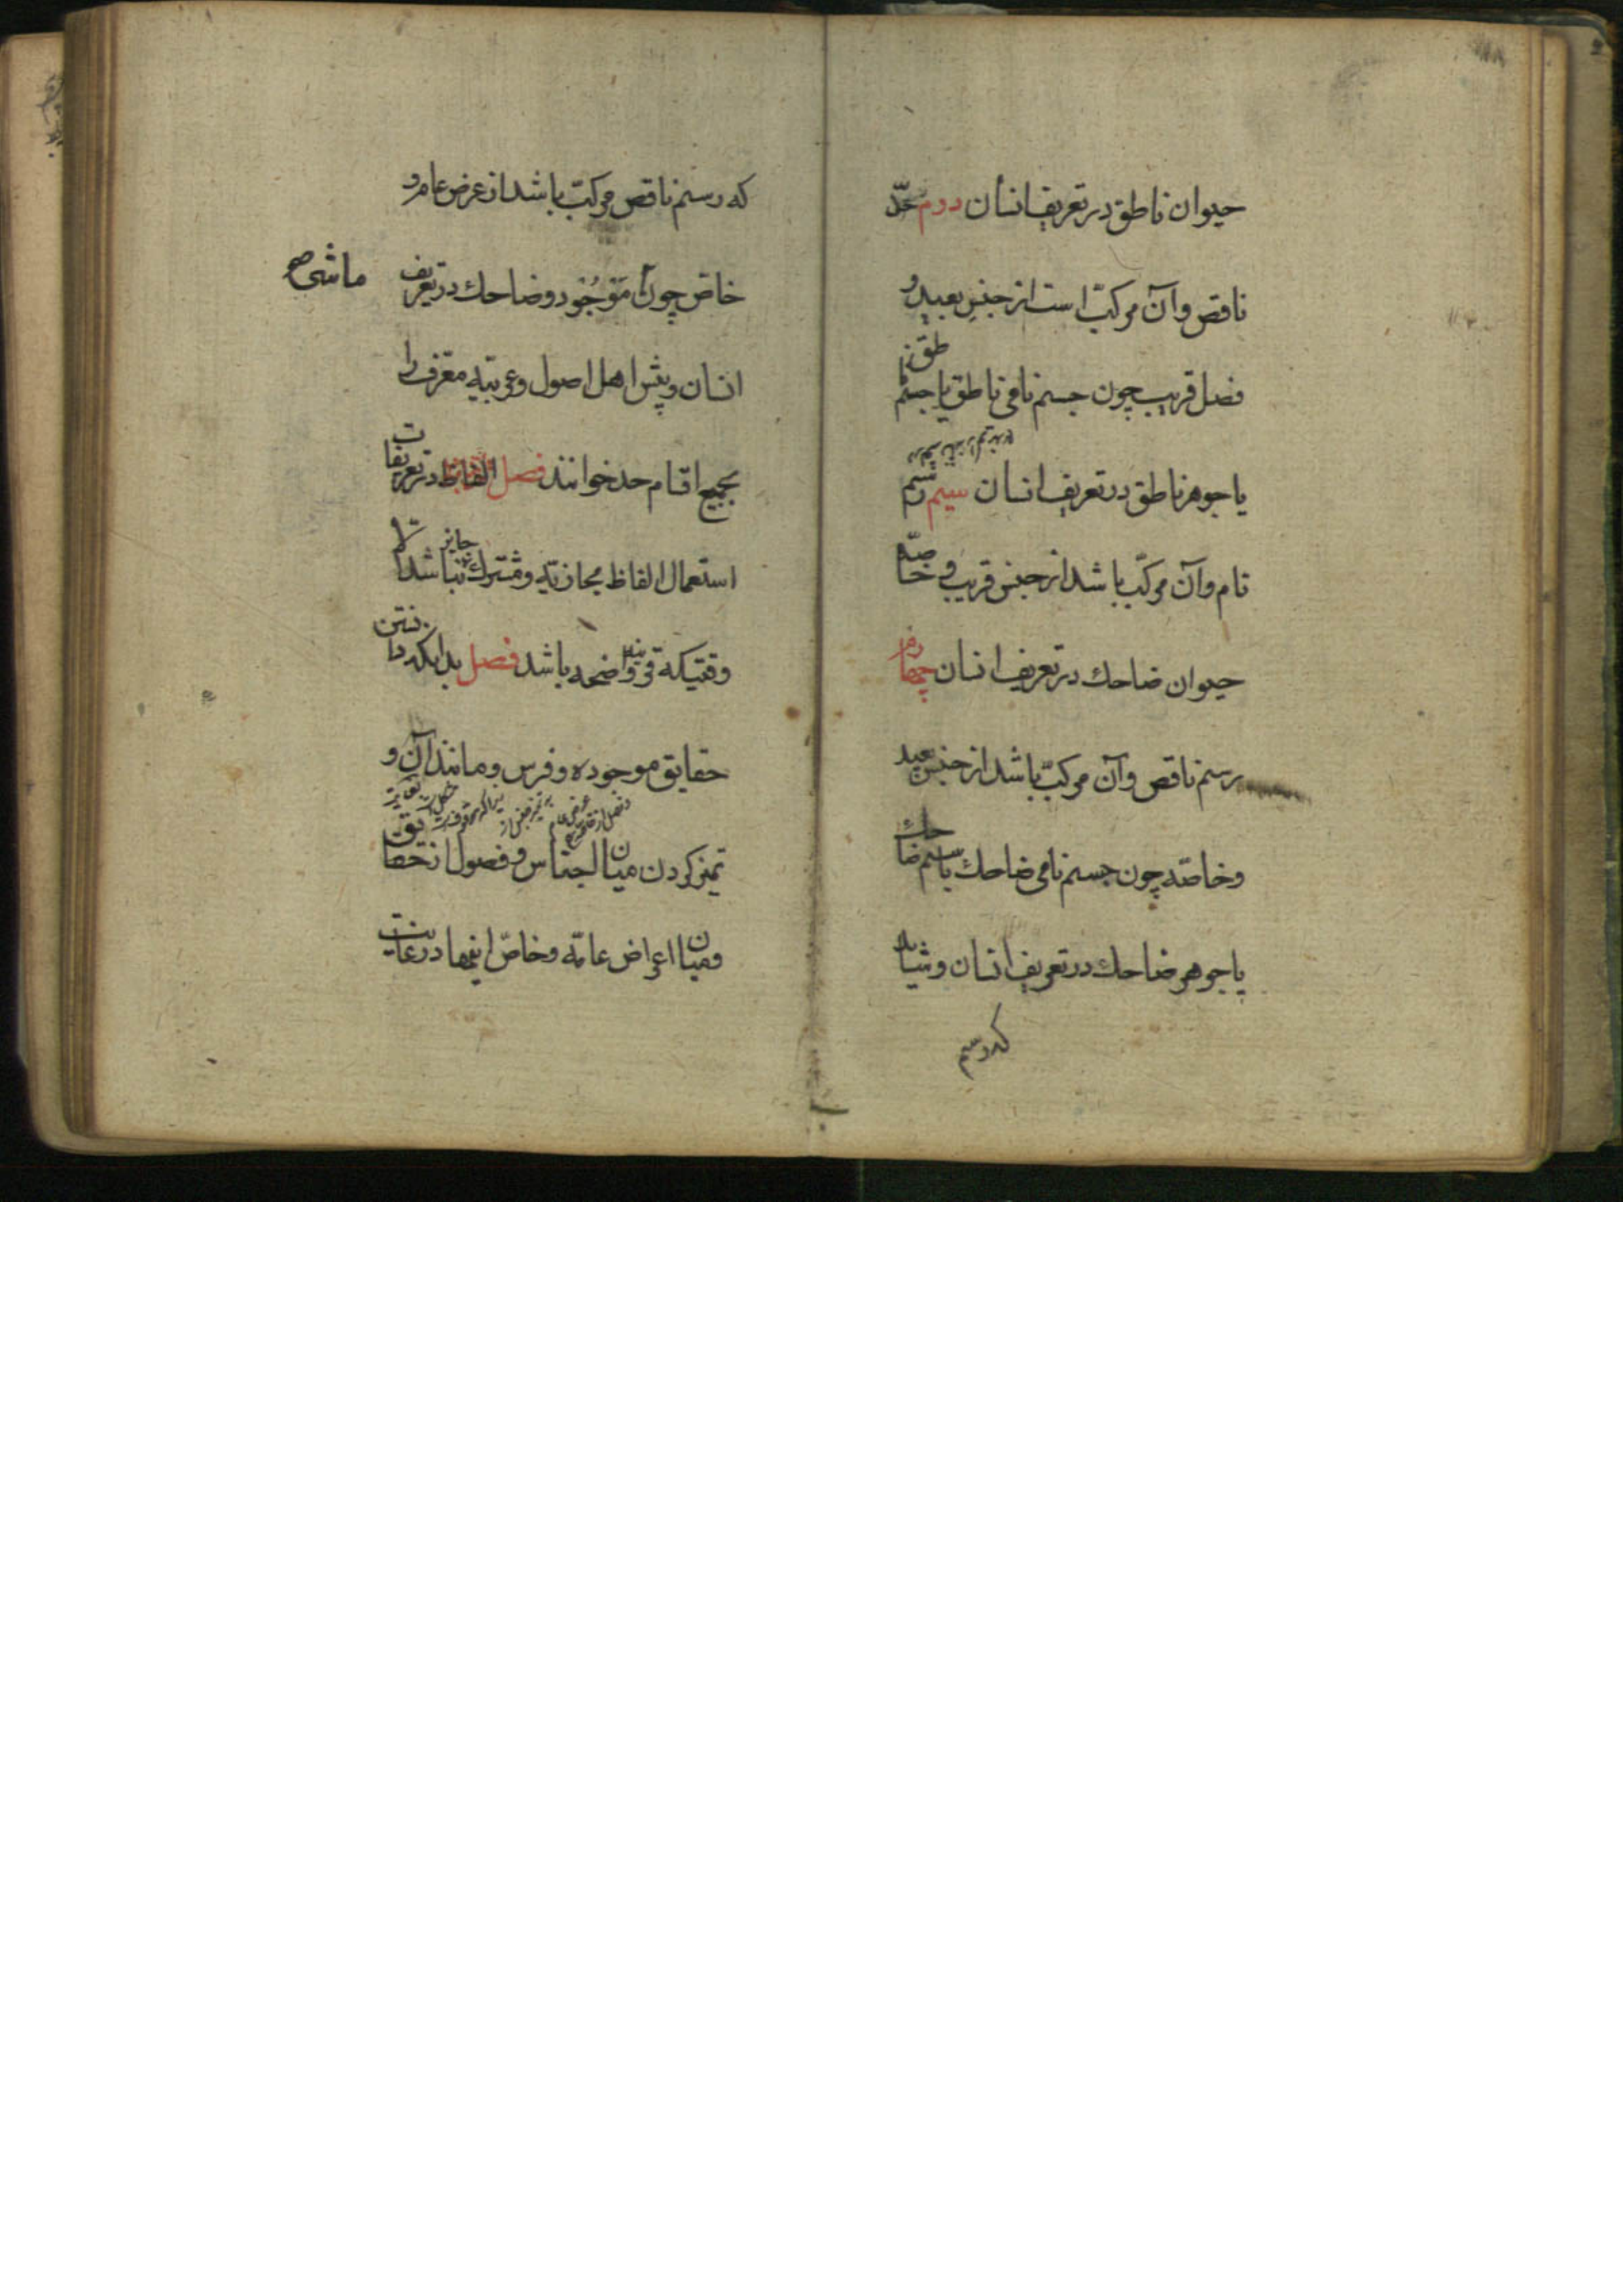 حیوان ناطق در تعریف انسان دوم حدّ
ناقص وآن مرکبّ است از جنس بعید و
فصل قریب چون جسم نامی ناطق یا جسم ناطق
یا جوهر ناطق در تعریف انسان سیم رسم
تام وآن مرکبّ باشد از جنس قریب و خاصّه
حیوان ضاحك در تعریف انسان چهارم
رسم ناقص وآن مرکبّ باشد از جنس بعید
وخاصّه چون جسم نامی ضاحك یا جسم ضاحك
یا جوهر ضاحك در تعریف انسان و شاید
که رسم
که رسم ناقص مرکبّ باشد از عرض عام و
خاصّ چون موجود وضاحك در تعریف
ماشی صح
انسان و پیش اهل اصول و عربیّه معرّف را
بجمیع اقسام حد خوانند فصل در تعریفات
استعمال الفاظ مجازیّه و مشترك جایز نباشد الّا
وقتیکه قرینه واضحه باشد فصل بدانکه دانستن
حقایق موجوده و فرس و مانند آن و
تمیز کردن میان اجناس و فصول از حقایق
و میان اعراض عامّه و خاصّ اینها در غایت